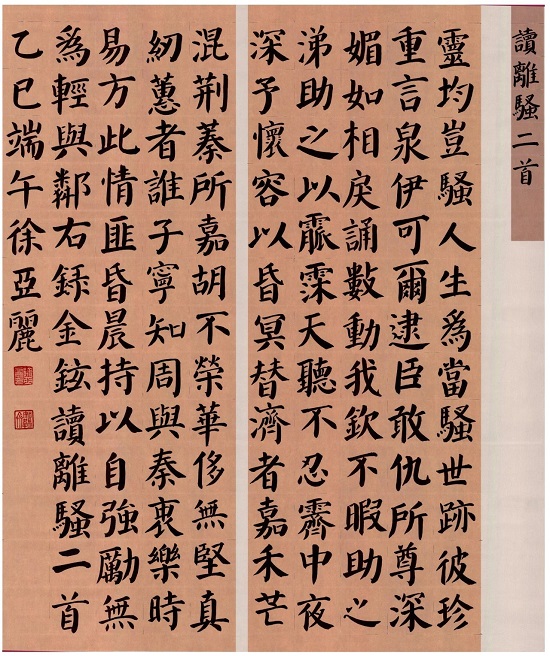 讀離騷二首
靈均豈騷人生爲當騷世跡彼珍
重言泉伊可爾逮臣敢仇所尊深
媚如相戾誦數動我欽不暇助之
涕助之以霢霂天聽不忍霽中夜
深予懷容以昏冥替濟者嘉禾芒
混荆蓁所嘉胡不榮華侈無堅真
紉蕙者誰子寧知周與秦哀樂時
易方此情匪昏晨持以自強勵無
爲輕與鄰右錄金鉉讀離騷二首
乙巳端午徐亞麗